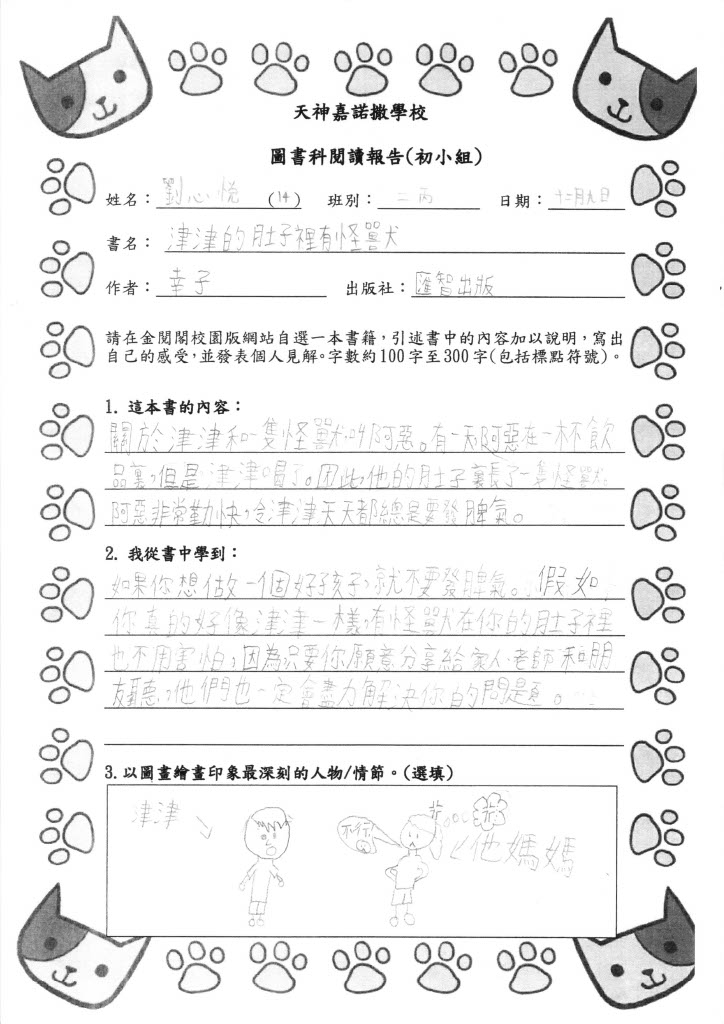 天神嘉諾撒學校
圖書科閱讀報告(初小組)
姓名：劉心悅 (14) 班別：二丙 日期：十二月九日
書名：津津的肚子裡有怪獸
作者：幸子 出版社：匯智出版
請在金閱閣校園版網站自選一本書籍，引述書中的內容加以說明，寫出
自己的感受，並發表個人見解。字數約100字至300字(包括標點符號)。
1. 這本書的內容：
關於津津和一隻怪獸叫阿惡。有一天，阿惡在一杯飲
品裏，但是津津喝了。因此他的肚子裏長了一隻怪獸。
阿惡非常勤快，令津津天天都總是要發脾氣。
2. 我從書中學到：
如果你想做一個好孩子，就不要發脾氣。假如
你真的好像津津一樣，有怪獸在你的肚子裡
也不用害怕，因為只要你願意分享給家人、老師和朋
友聽，他們也一定會盡力解決你的問題。
3. 以圖畫繪畫印象最深刻的人物/情節。(選填)
津津
不行
他媽媽